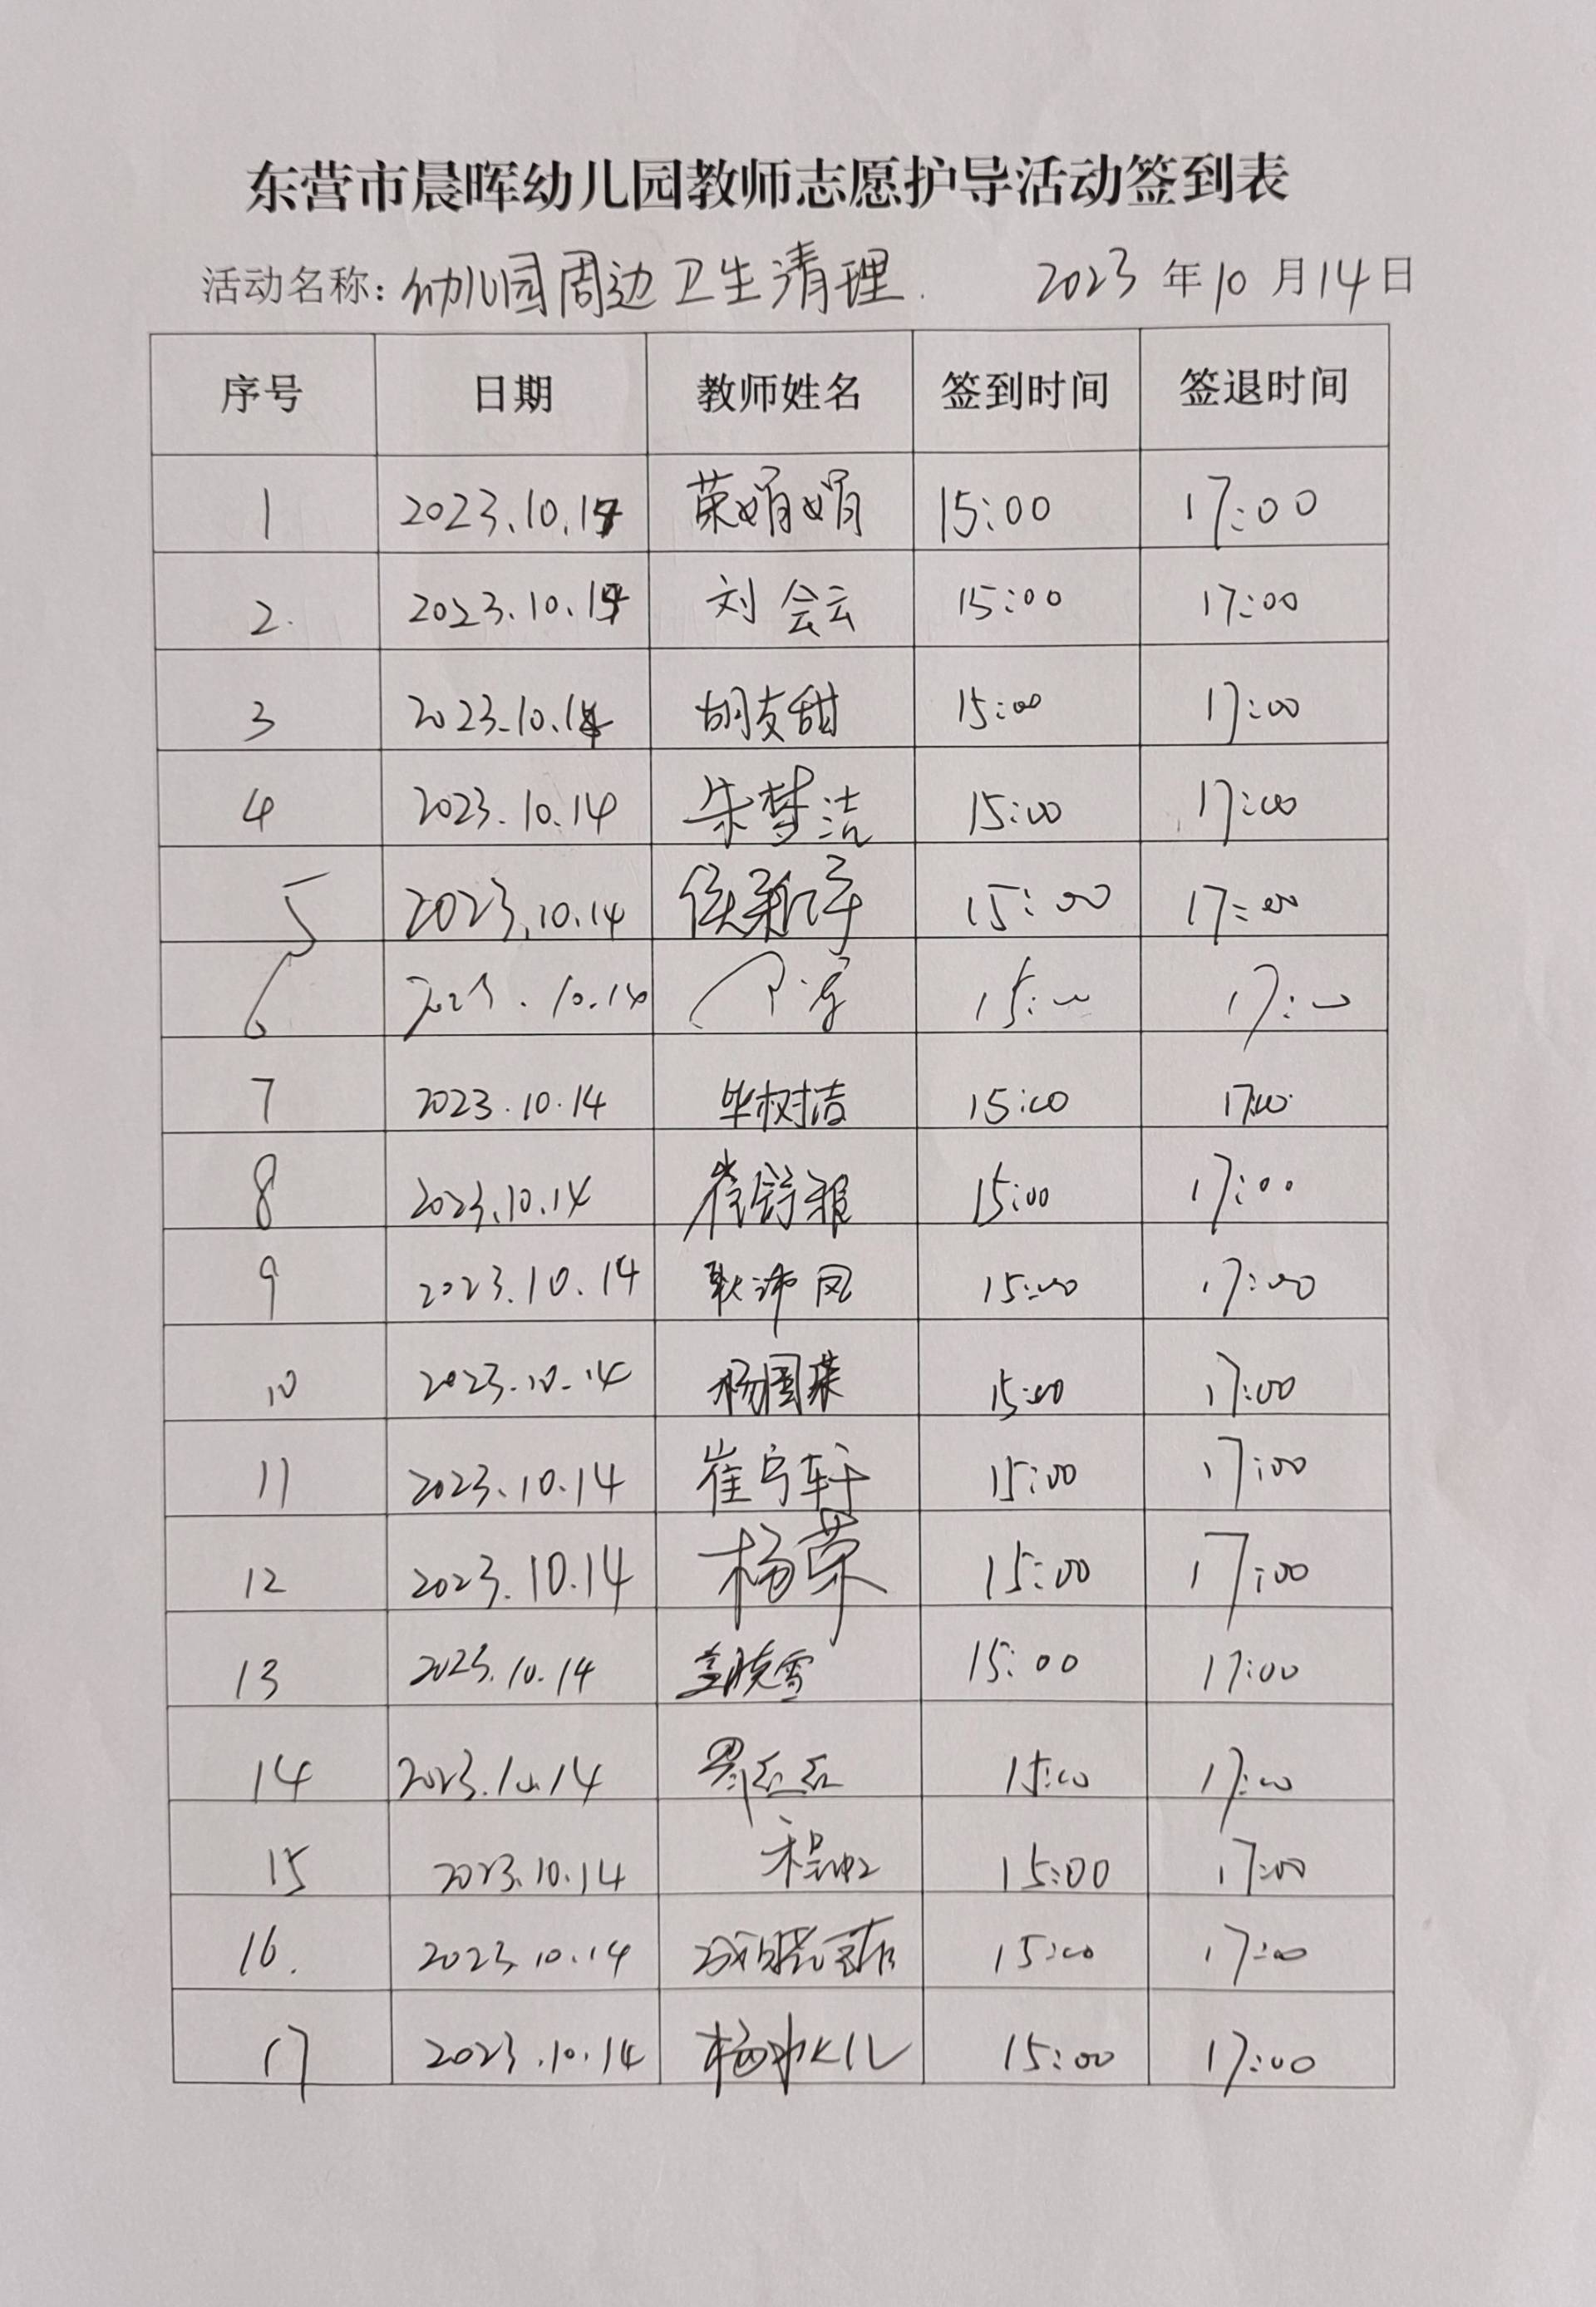 东营市晨晖幼儿园教师志愿护导活动签到表
活动名称：幼儿园周边卫生清理. 2023 年 10 月 14 日
序号 日期 教师姓名 签到时间 签退时间
1 2023.10.14 荣娟娟 15:00 17:00
2. 2023.10.14 刘会云 15:00 17:00
3 2023.10.14 胡友甜 15:00 17:00
4 2023.10.14 朱梦洁 15:00 17:00
5 2023.10.14 15:00 17:00
6 2023.10.14 15:00 17:00
7 2023.10.14 毕树洁 15:00 17:00
8 2023.10.14 崔舒雅 15:00 17:00
9 2023.10.14 耿沛凤 15:00 17:00
10 2023.10.14 杨国荣 15:00 17:00
11 2023.10.14 崔宁轩 15:00 17:00
12 2023.10.14 杨荣 15:00 17:00
13 2023.10.14 15:00 17:00
14 2023.10.14 15:00 17:00
15 2023.10.14 15:00 17:00
16. 2023.10.14 15:00 17:00
17 2023.10.14 15:00 17:00